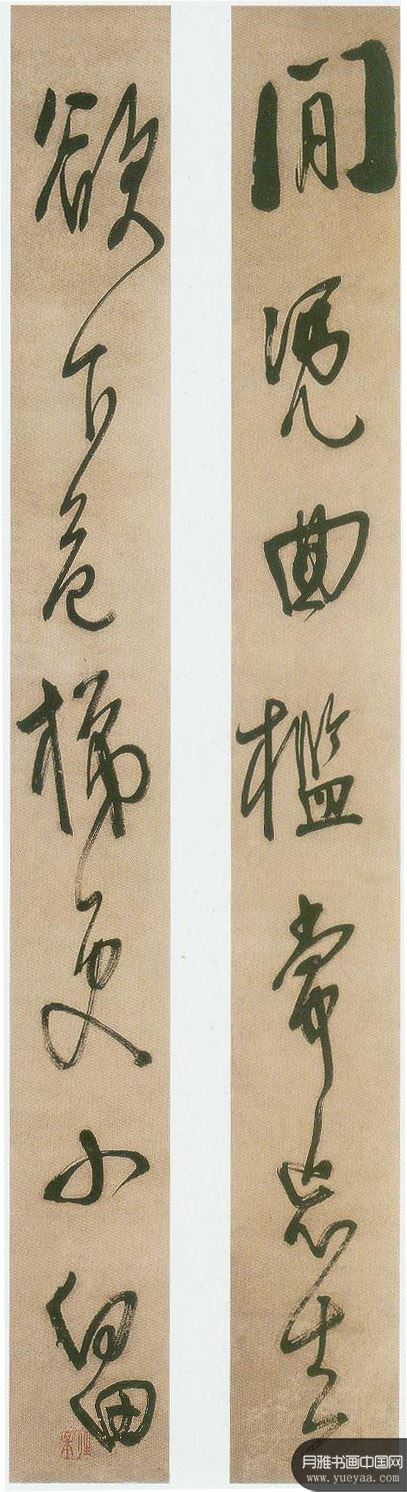 閒凴曲檻常忘去
欲下危梯更小留
月雅书画中国网
www.yueyaa.com